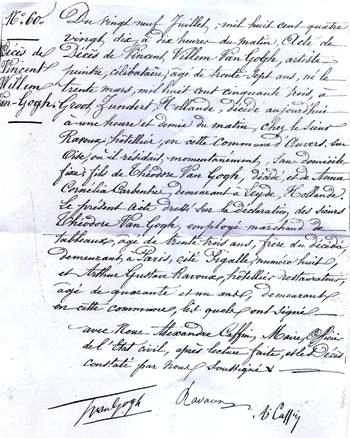 No. 60.
Décès de
Vincent
Willem
Van-Gogh
Du vingt neuf Juillet, mil huit cent quatre
vingt, dix, à dix heures du matin. Acte de
Décès de Vincent, Willem Van Gogh, artiste
peintre, célibataire, âgé de trente sept ans, né le
trente mars, mil huit cent cinquante trois, à
Groot Zundert Hollande, décédé aujourd'hui
à une heure et demie du matin, chez le Sieur
Ravoux, hôtellier, en cette commune d'Auvers sur
Oise, où il résidait, momentanément, sans domicile
fixe; fils de Théodore Van Gogh, décédé, et de Anna
Cornélia Carbentus demeurant à Leyde, Hollande.
Le présent acte dressé sur la déclaration, des sieurs
Théodore Van Gogh, employé marchand de
tableaux, âgé de trente trois ans, frère du décédé,
demeurant à Paris, cité Pigalle, numéro huit
et Arthur Gustave Ravoux, hôtellier restaurateur,
âgé de quarante et un ans, demeurant
en cette commune, les quels ont signé
avec Nous Alexandre Caffin, Maire, Officier
de l'Etat civil, après lecture faite, et le Décès
constaté par Nous Soussigné
Van Gogh
Ravoux
Caffin